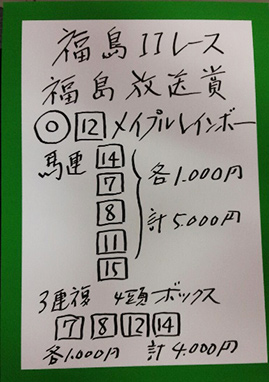 福島11レース
福島放送賞
◎ 12 メイプルレインボー
馬連 14
7
8
11
15
各1.000円
計5.000円
3連複 4頭ボックス
7 8 12 14
各1.000円 計4.000円